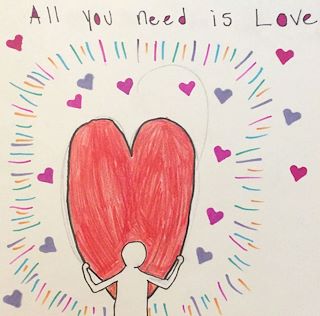 All you need is Love